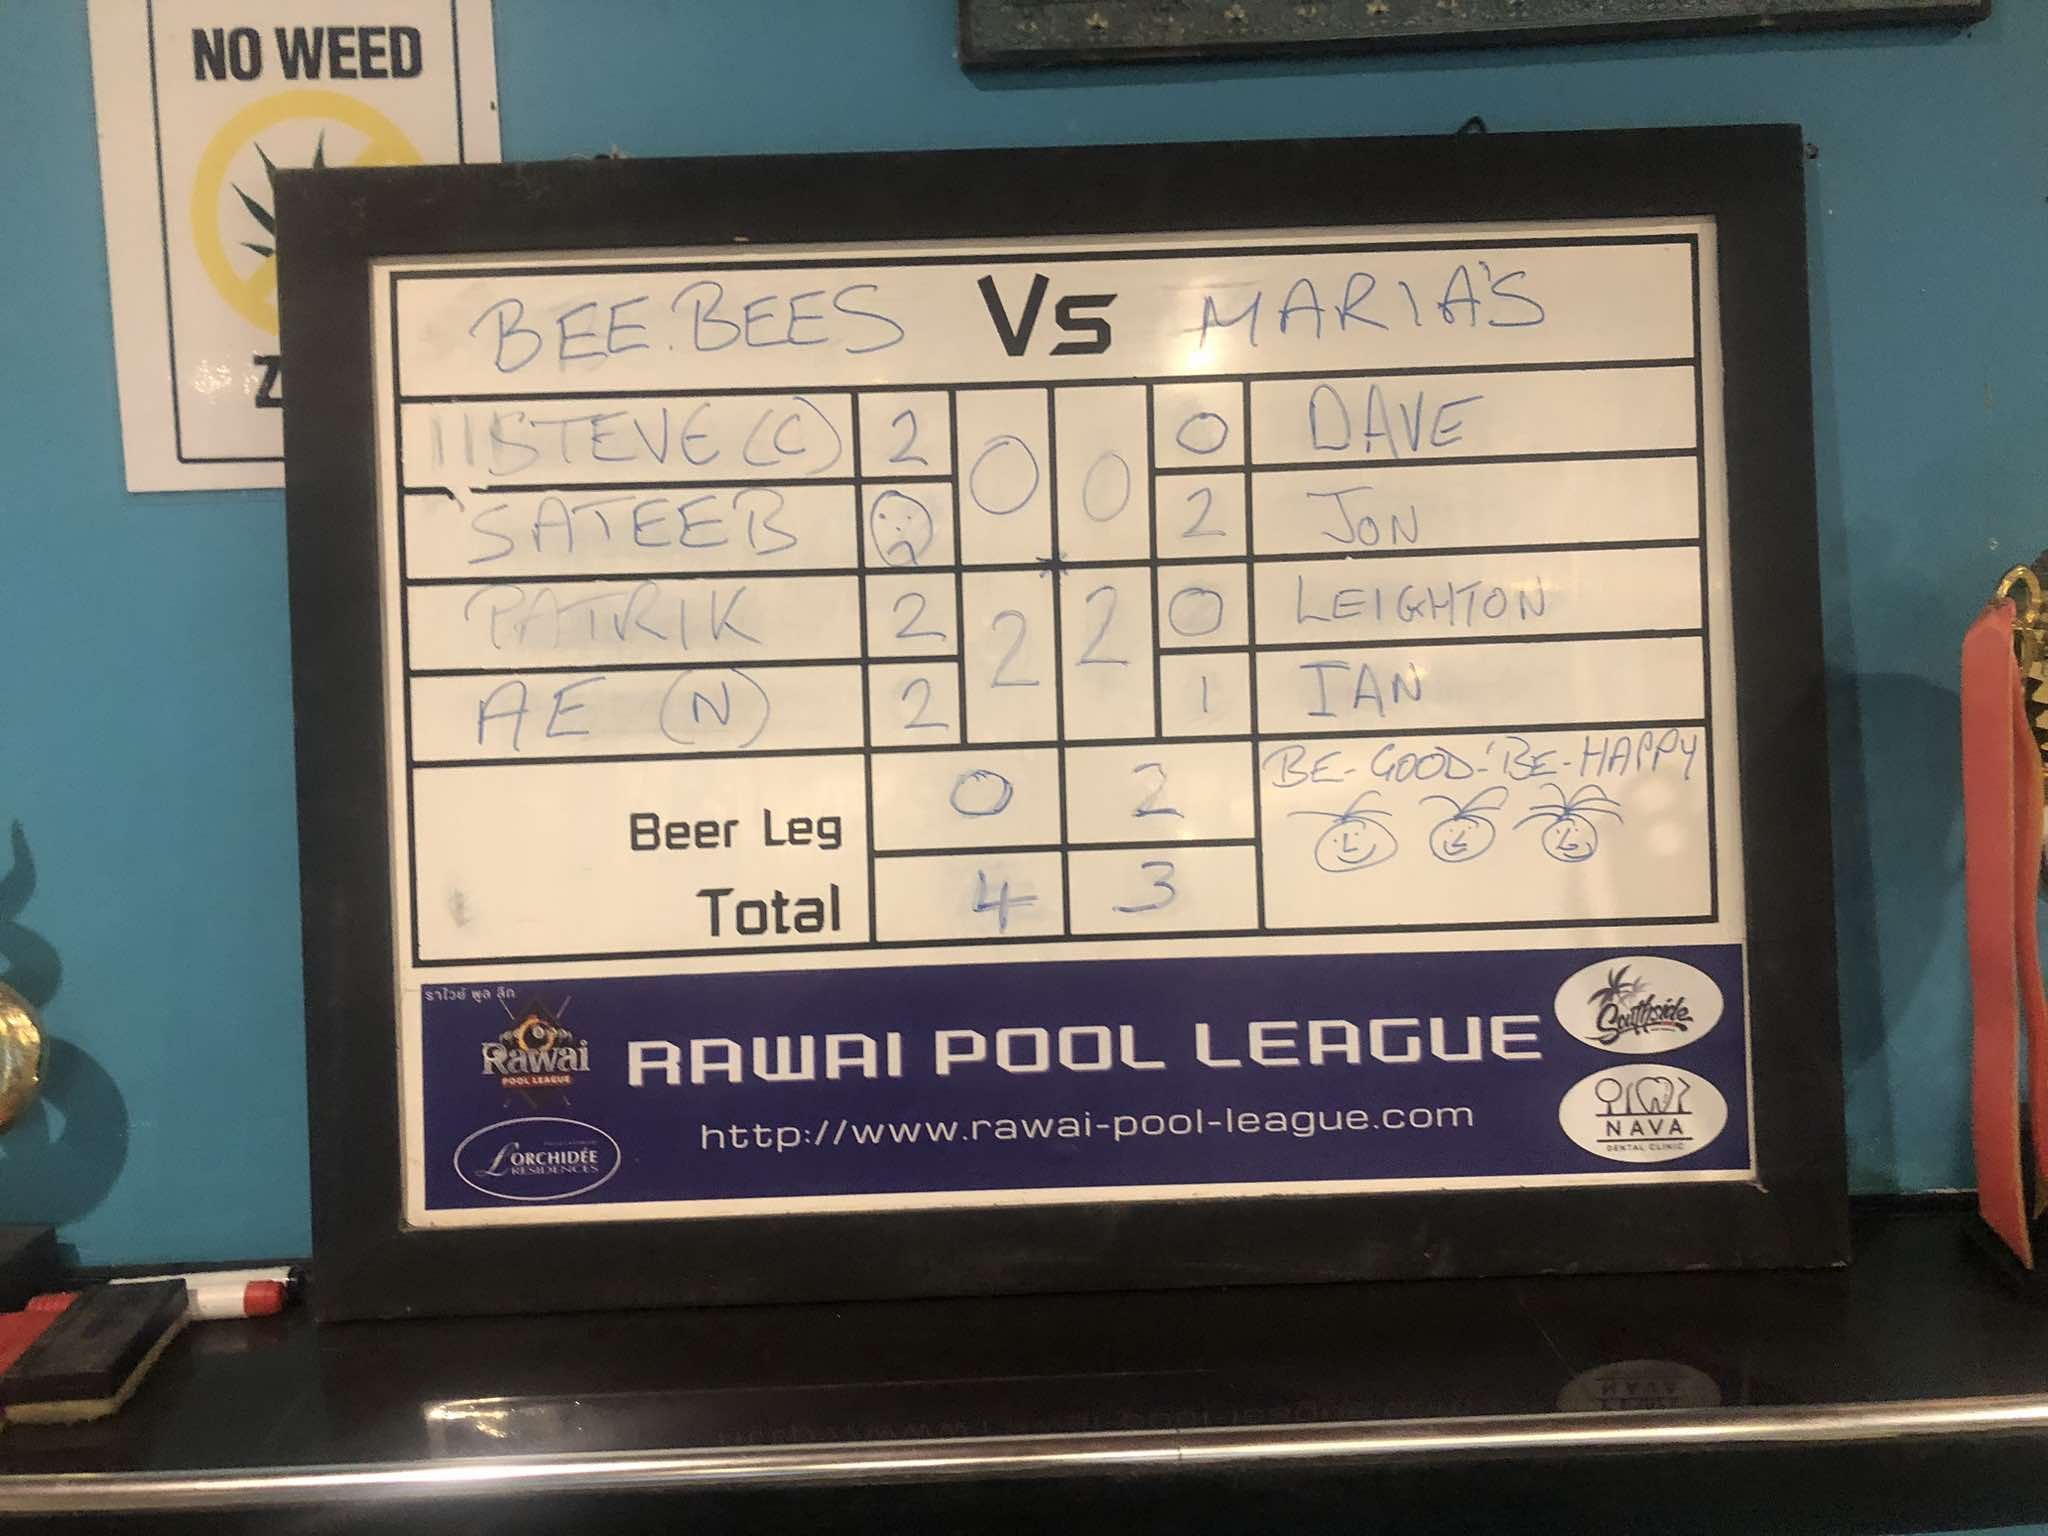 NO WEED
Z
BEE.BEES Vs MARIA'S
STEVE (C) 2 0 0 0 DAVE
SATEEB 2 JON
PATRIK 2 2 2 0 LEIGHTON
AE (N) 2 1 IAN
BE-GOOD-BE-HAPPY
Beer Leg 0 2
Total 4 3
ราไวย์ พูล ลีก
Rawai
POOL LEAGUE
RAWAI POOL LEAGUE
http://www.rawai-pool-league.com
L'ORCHIDÉE
RESIDENCES
Southside
NAVA
DENTAL CLINIC